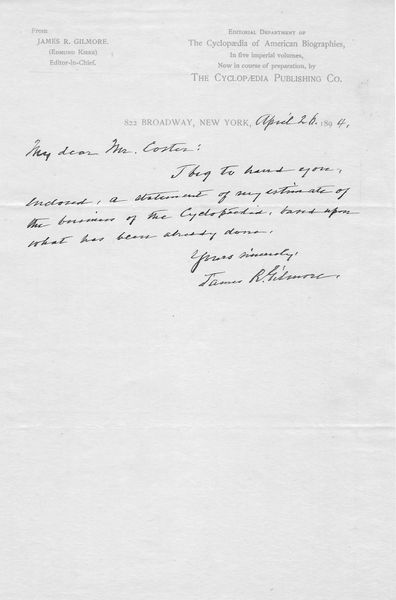 From
JAMES R. GILMORE.
(Edmund Kirke)
Editor-in-Chief.
Editorial Department of
The Cyclopædia of American Biographies,
In five imperial volumes,
Now in course of preparation, by
The Cyclopædia Publishing Co.
822 BROADWAY, NEW YORK, April 26. 1894,
My dear Mr. Coster:
I beg to hand you,
enclosed, a statement of my estimate of
the business of the Cyclopædia, based upon
what has been already done.
Yours sincerely,
James R. Gilmore.